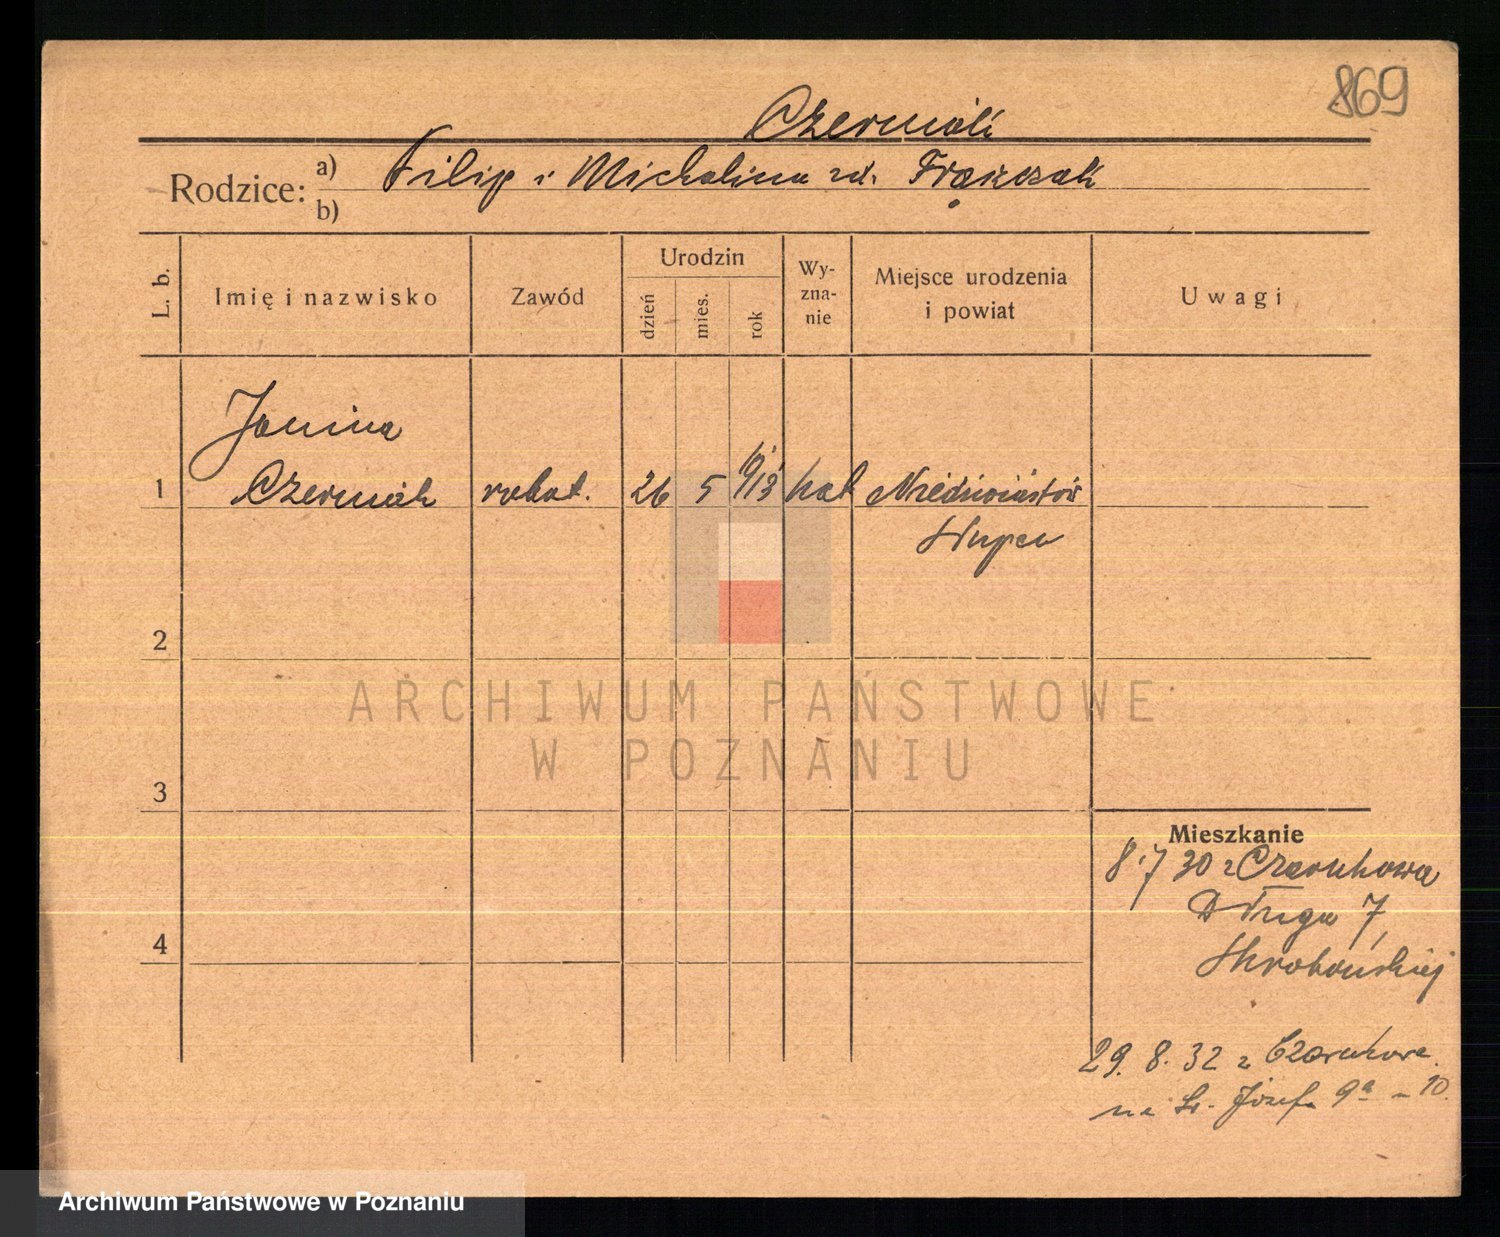 869
Czerniak
Rodzice: a) Filip i Michalina zd. Frąckczak
b)
L. b.
Imię i nazwisko
Zawód
Urodzin
dzień
mies.
rok
Wy-
zna-
nie
Miejsce urodzenia
i powiat
Uwagi
Janina
1 Czerniak robot. 26 5 1913 kat
Słupca
2
3
4
ARCHIWUM PAŃSTWOWE
W POZNANIU
Mieszkanie
8.7 30 z Czarnkowa
Długa 7,
29. 8. 32 z Czarnkowa
na Św. Józefa 9a - 10.
Archiwum Państwowe w Poznaniu